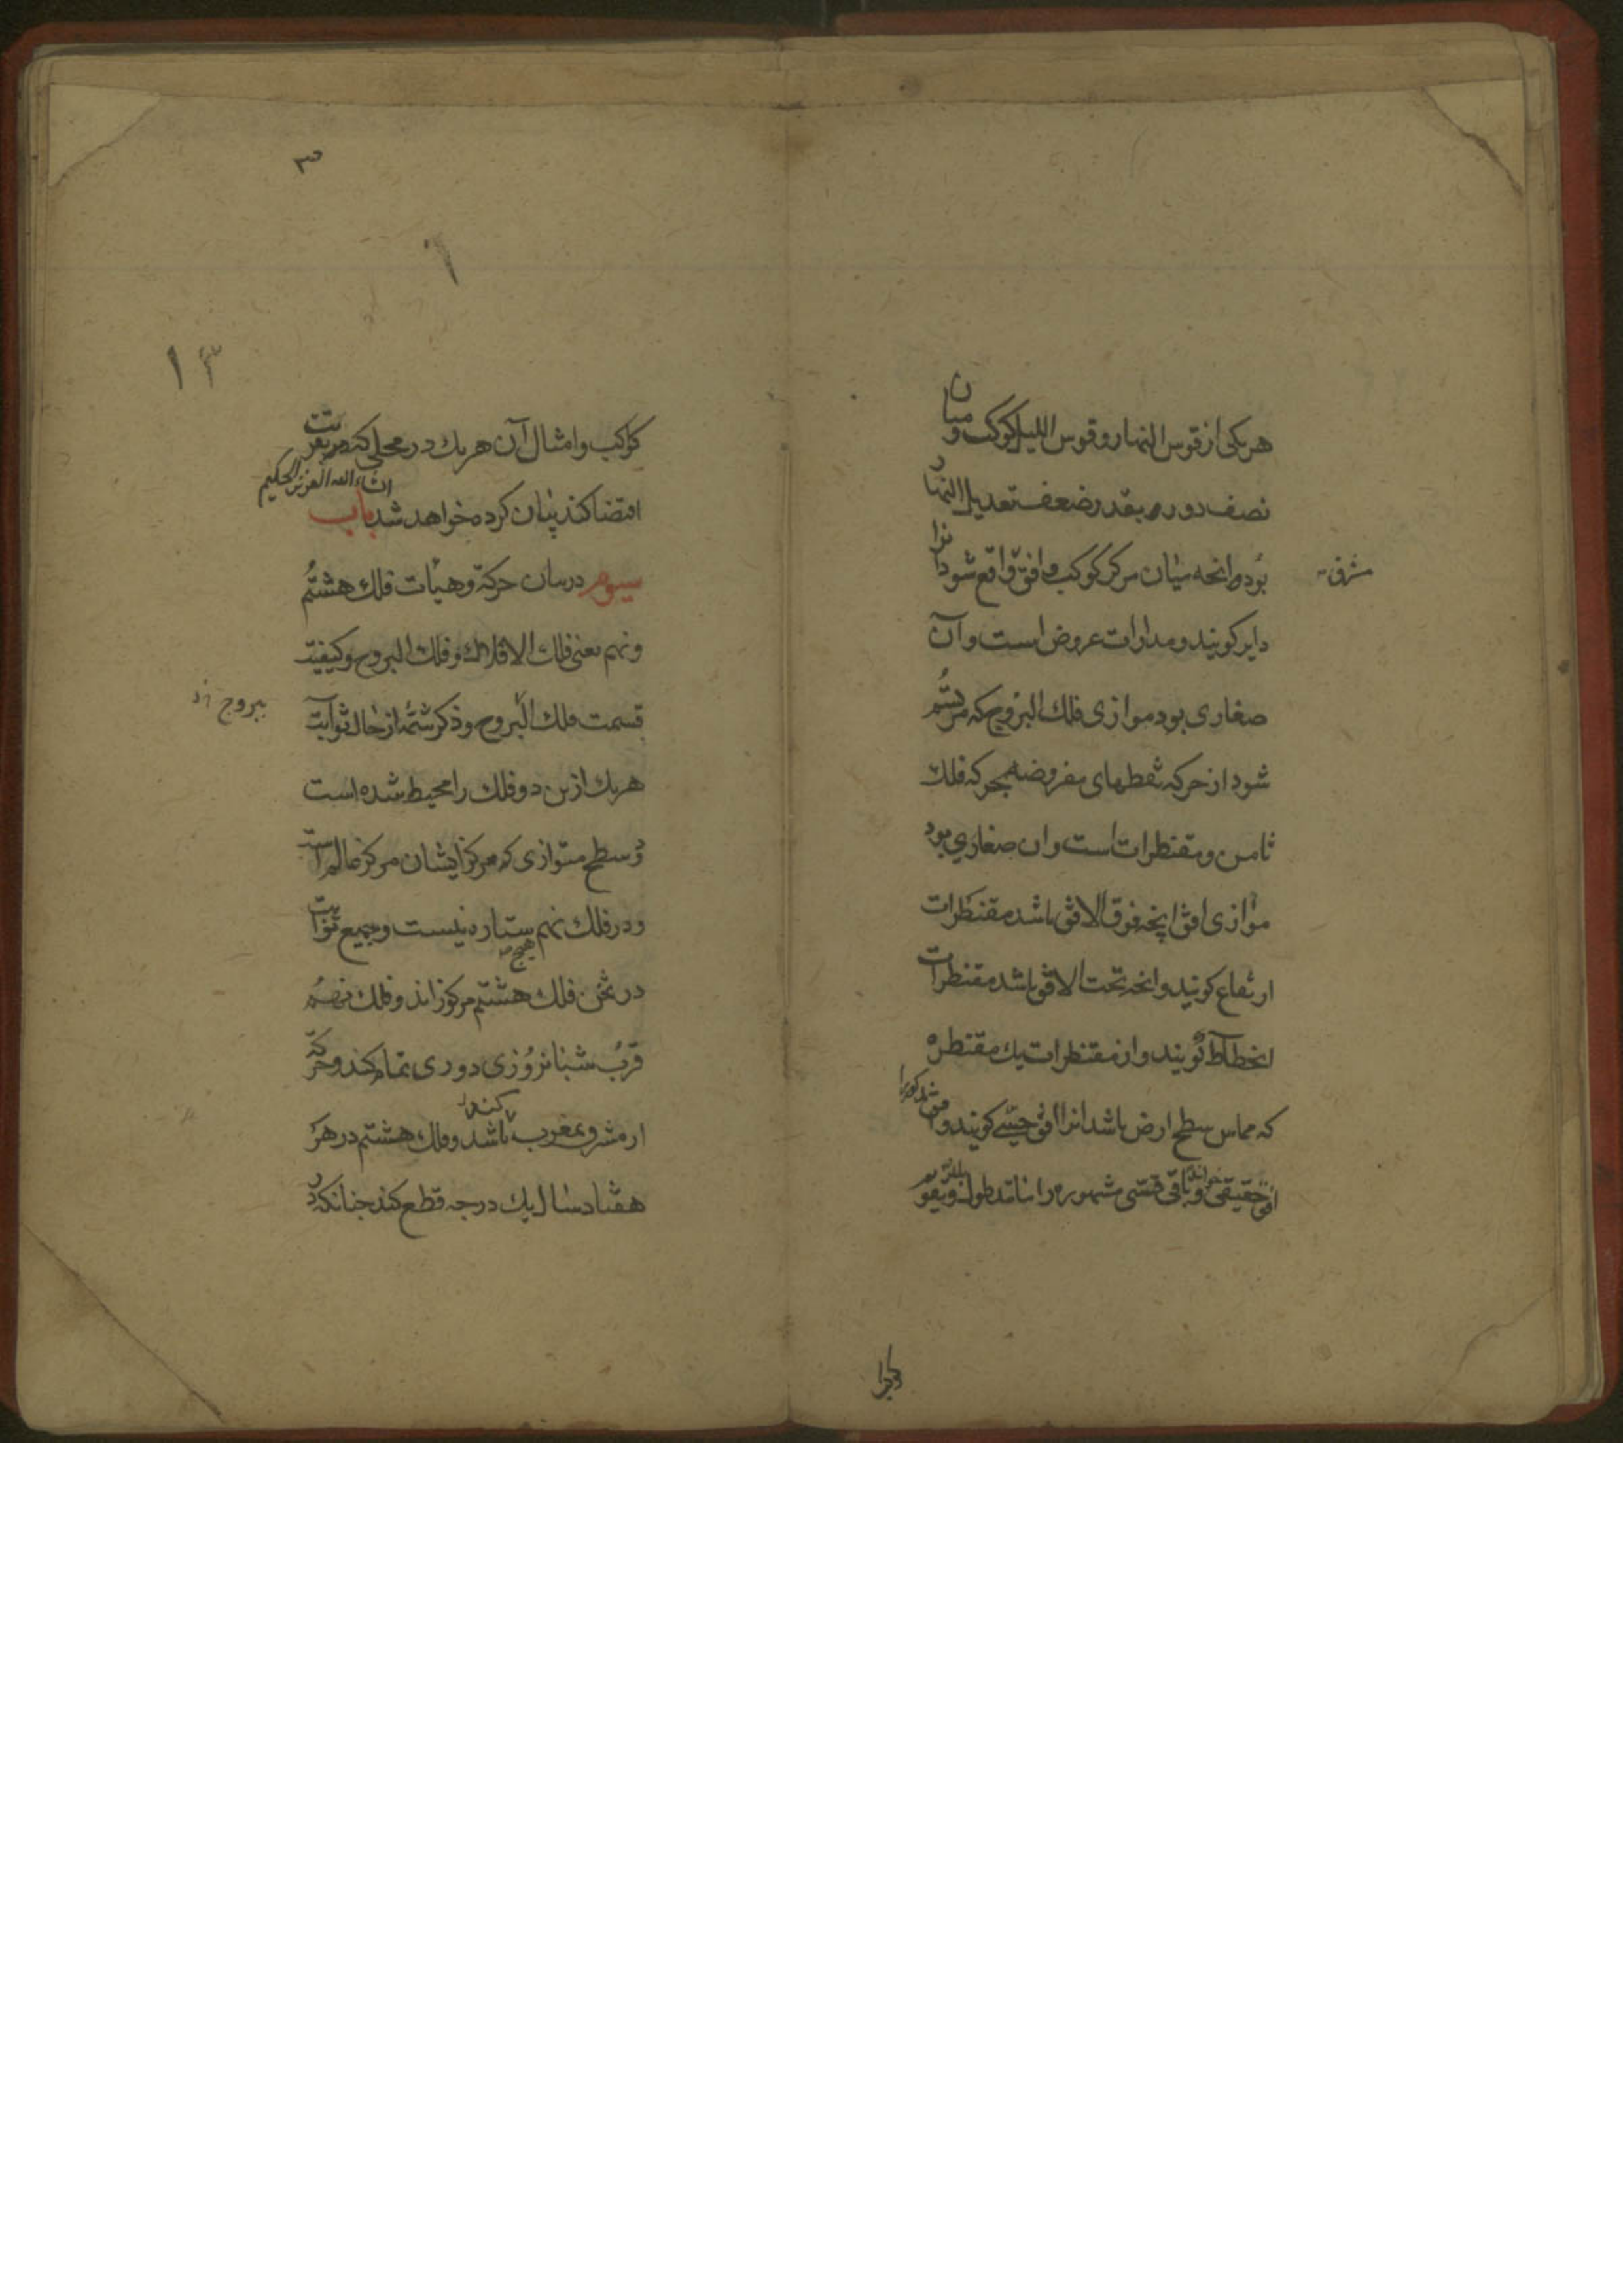 هر یکی از قوس النهار و قوس اللیل کوکب و میان
نصف دوره بقدر ضعف تعدیل النهار
بود وانچه میان مرکز کوکب و افق واقع شود انرا
مشرق
دایر کویند و مدارات عروض است و آن
صغاری بود موازی فلك البروج که مرتسم
شود از حرکه نقطهای مفروضه بحرکه فلك
ثامن و مقنطرات است وان صغاری بود
موازی افق انچه فوق الافق باشد مقنطرات
ارتفاع کویند وانچه تحت الافق باشد مقنطرات
انحطاط کویند وان مقنطرات یك مقنطره
که مماس سطح ارض باشد انرا افق حسی کویند و
افق حقیقی خوانند و باقی قسی مشهوره را مانند طول و تقویم
کواکب و امثال آن هر یك در محلی که
اقتضا کند بیان کرده خواهد شد ان شاء الله العزیز الحکیم باب
سیوم در بیان حرکة و هیأت فلك هشتم
ونهم یعنی فلك الافلاك و فلك البروج و کیفیت
قسمت فلك البروج و ذکر شمّه از حال ثوابت
ببروج
هر یك ازین دو فلك را محیط شده است
دو سطح متوازی که مرکز ایشان مرکز عالم است
و در فلك نهم هیچ ستاره نیست و جمیع ثوابت
در ثخن فلك هشتم مرکوز اند و فلك نهم
قرب شبانروزی دوری تمام کند و حرکة
از مشرق بمغرب باشد و فلك هشتم در هر
هفتاد سال یك درجه قطع کند چنانکه در